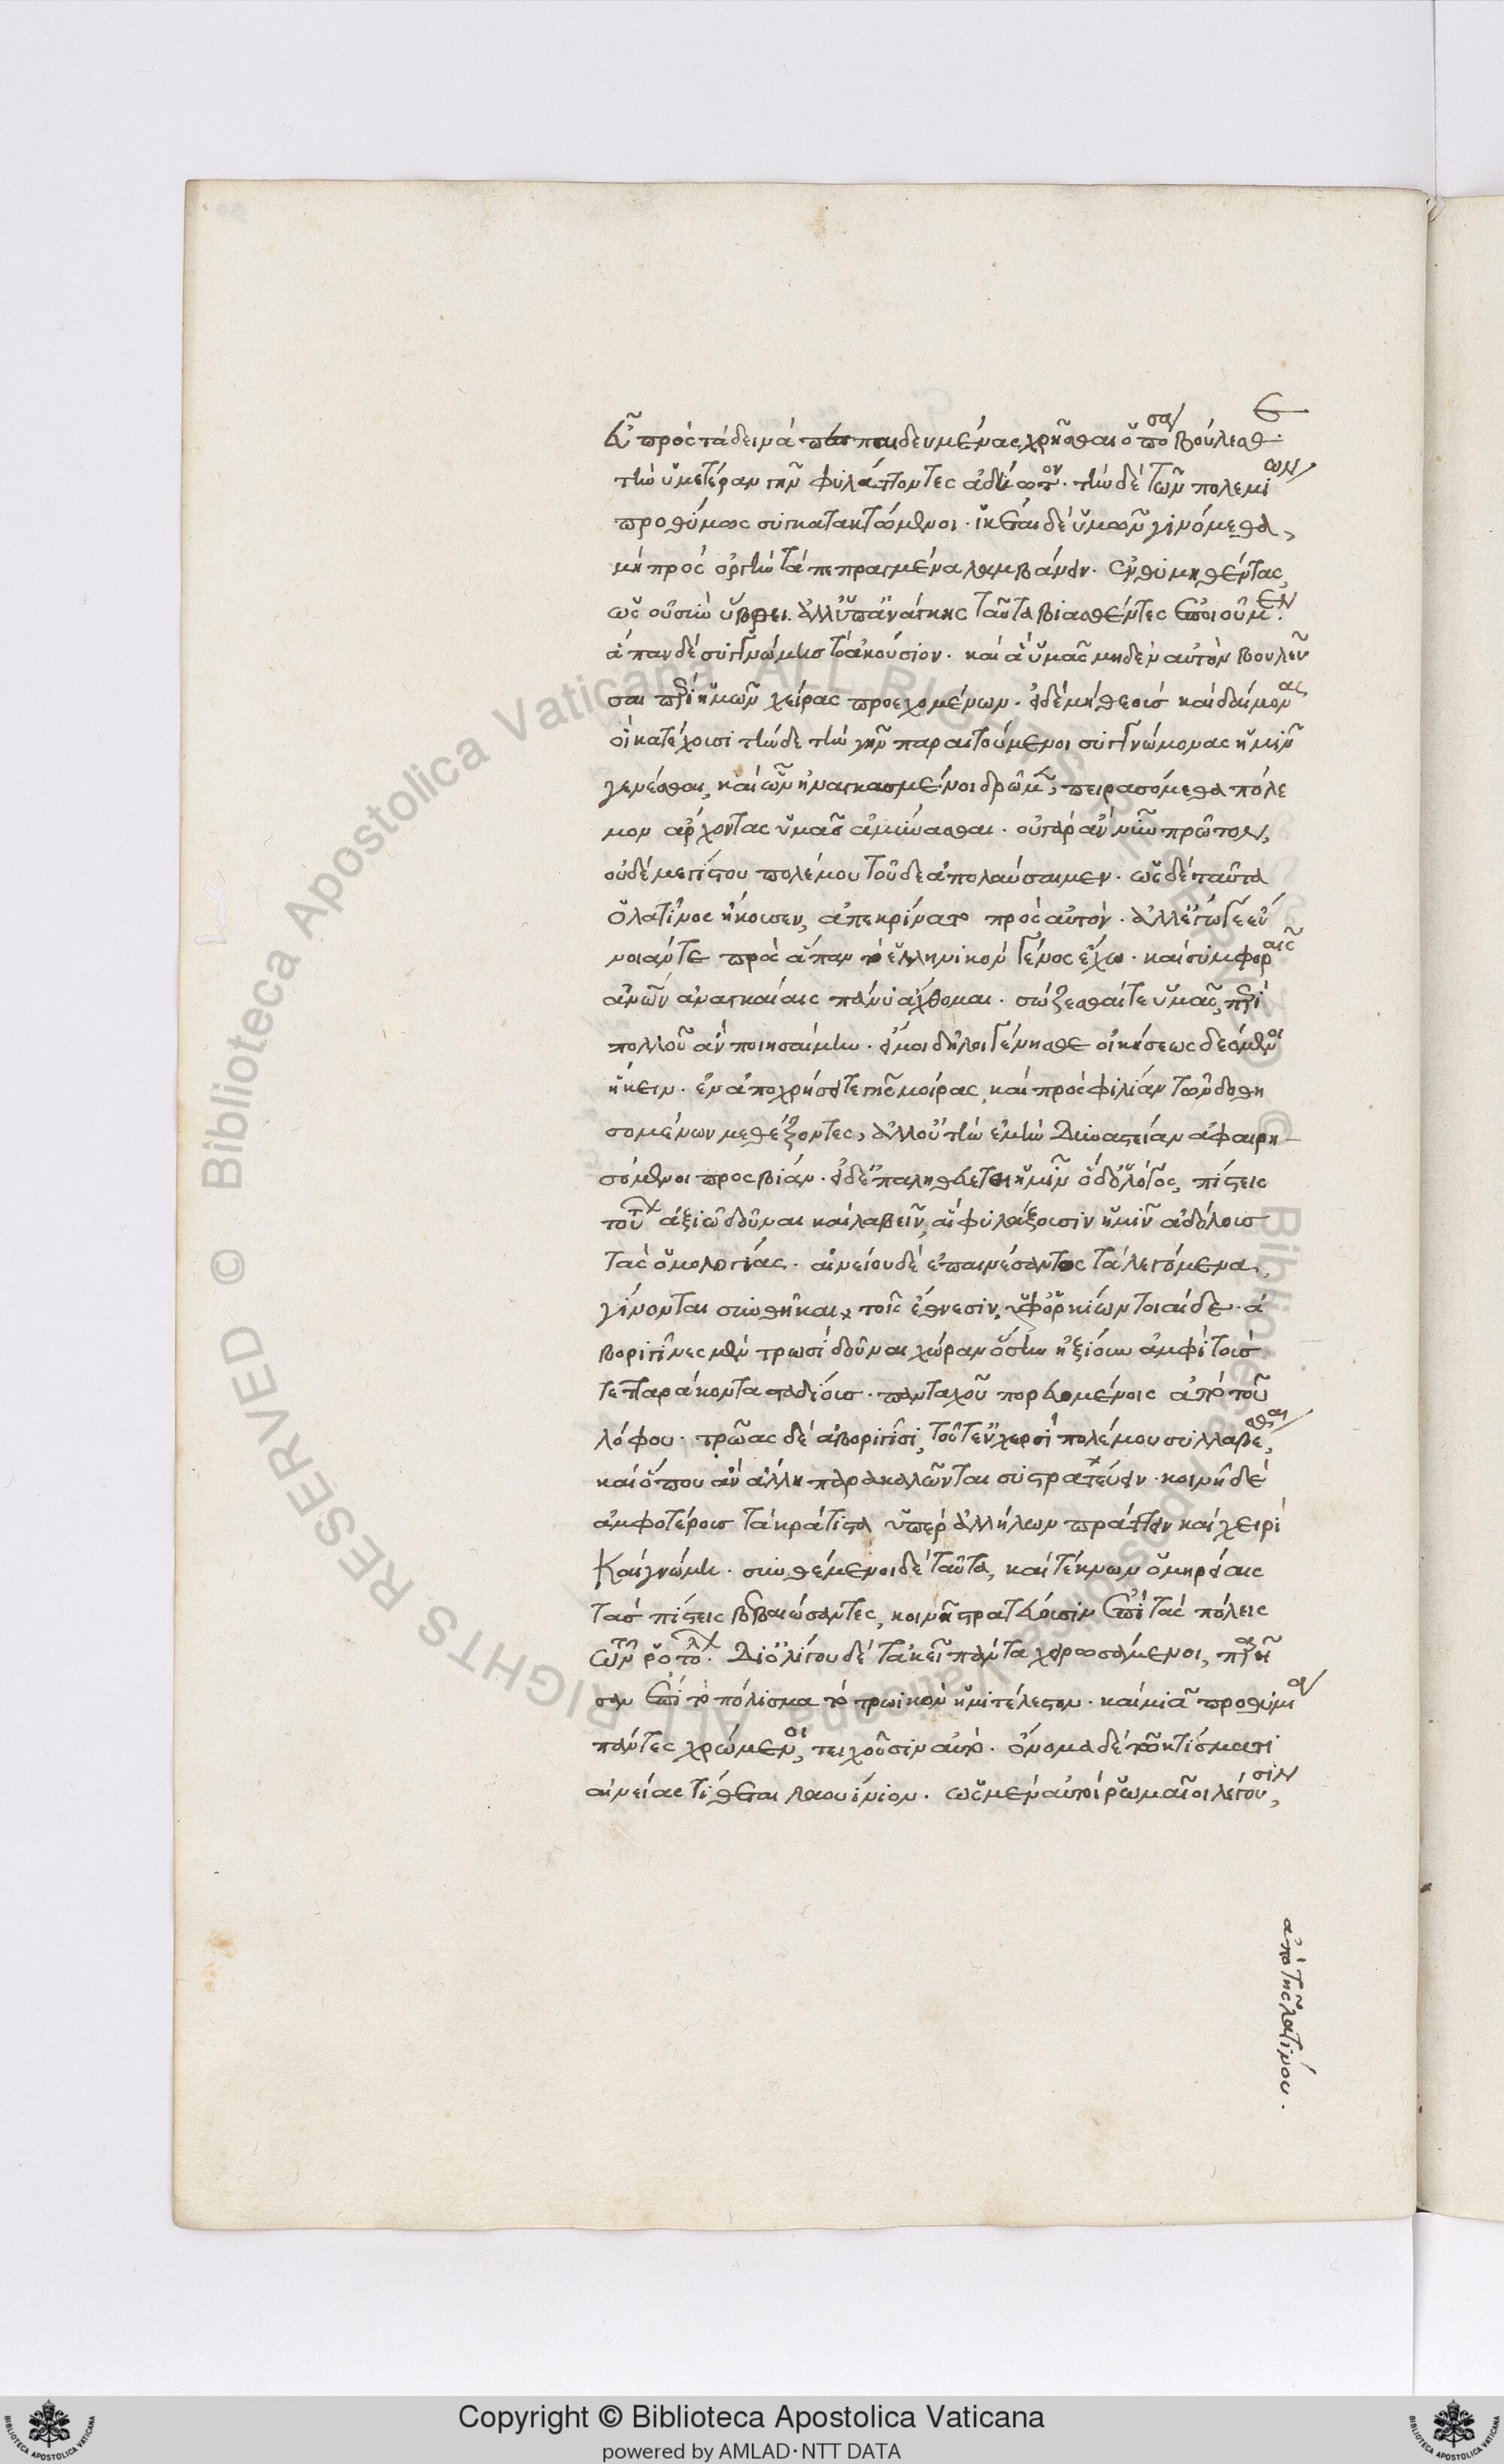 εὖ πρὸς τὰ δεινὰ πεπαιδευμένας χρῆσθαι ὁπόσα βούλεσθε.
τὴν ὑμετέραν γῆν φυλάττοντες ἀδῄωτον. τὴν δὲ τῶν πολεμίων
προθύμως συγκατακτώμενοι. ἱκέται δὲ ὑμῶν γινόμεθα,
μὴ πρὸς ὀργὴν τὰ πεπραγμένα λαμβάνειν. ἐνθυμηθέντας,
ὡς οὐ σὺν ὕβρει. ἀλλ' ὑπ' ἀνάγκης ταῦτα βιασθέντες ἐποιοῦμεν.
ἅπαν δὲ σύγγνωμον τὸ ἀκούσιον. καὶ ὑμᾶς μηδὲν αὐτὸν βουλεῦ
σαι περὶ ἡμῶν χεῖρας προεχομένων. εἰ δὲ μὴ θεοὺς καὶ δαίμονας
οἳ κατέχουσι τήνδε τὴν γῆν παραιτούμενοι συγγνώμονας ἡμῖν
γενέσθαι, καὶ ὧν ἠναγκασμένοι δρῶμεν, πειρασόμεθα πολέ
μου ἄρχοντας ὑμᾶς ἀμύνασθαι. οὐ γὰρ ἂν νῦν πρῶτον,
οὐδὲ μεγίστου πολέμου τοῦδε ἀπολαύσαιμεν. ὡς δὲ ταῦτα
ὁ λατῖνος ἤκουσεν, ἀπεκρίνατο πρὸς αὐτόν. ἀλλ' ἔγωγε εὔ
νοιάν τε πρὸς ἅπαν τὸ ἑλληνικὸν γένος ἔχω. καὶ συμφοραῖς
ἀνθρώπων ἀναγκαίαις πάνυ ἄχθομαι. σώζεσθαί τε ὑμᾶς, περὶ
πολλοῦ ἂν ποιησαίμην. εἴ μοι δῆλοι γένησθε οἰκήσεως δεόμενοι
ἥκειν. ἐν ἀποχρήσῃ τε γῆς μοίρας, καὶ πρὸς φιλίαν τῶν δοθη
σομένων μεθέξοντες, ἀλλ' οὐ τὴν ἐμὴν δυναστείαν ἀφαιρη
σόμενοι πρὸς βίαν. εἰ δὲ ἐπαληθεύεται ἡμῖν ὅδ' ὁ λόγος, πίστεις
τούτων ἀξιῶ δοῦναι καὶ λαβεῖν, αἳ φυλάξουσιν ἡμῖν ἀδόλους
τὰς ὁμολογίας. αἰνείου δὲ ἐπαινέσαντος τὰ λεγόμενα,
γίνονται συνθῆκαι τοῖς ἔθνεσιν, ὑφ' ὁρκίων τοιαίδε. ἀ
βοριγῖνες μὲν τρωσὶ δοῦναι χώραν ὅσην ἠξίουν ἀμφὶ τοὺς
τετταράκοντα σταδίους. πανταχοῦ πορευομένοις ἀπὸ τοῦ
λόφου. τρῶας δὲ ἀβοριγῖσι, τοῦ τ' ἐν χερσὶ πολέμου συλλαβέσθαι,
καὶ ὅπου ἂν ἄλλῃ παρακαλῶνται συστρατεύειν. κοινῇ δὲ
ἀμφοτέρους τὰ κράτιστα ὑπὲρ ἀλλήλων πράττειν καὶ χειρὶ
καὶ γνώμῃ. συνθέμενοι δὲ ταῦτα, καὶ τέκνων ὁμηρείαις
τὰς πίστεις βεβαιώσαντες, κοινῇ στρατεύουσιν ἐπὶ τὰς πόλεις
τῶν ῥοτόλων. δι' ὀλίγου δὲ τἀκεῖ πάντα χειρωσάμενοι, παρῆ
σαν ἐπὶ τὸ πόλισμα τὸ τρωικὸν ἡμιτέλεστον. καὶ μιᾷ προθυμίᾳ
πάντες χρώμενοι, τειχοῦσιν αὐτό. ὄνομα δὲ τῷ κτίσματι
αἰνείας τίθεται λαουίνιον. ὡς μὲν αὐτοὶ ῥωμαῖοι λέγουσιν,
ἀπὸ τῆς λατίνου.